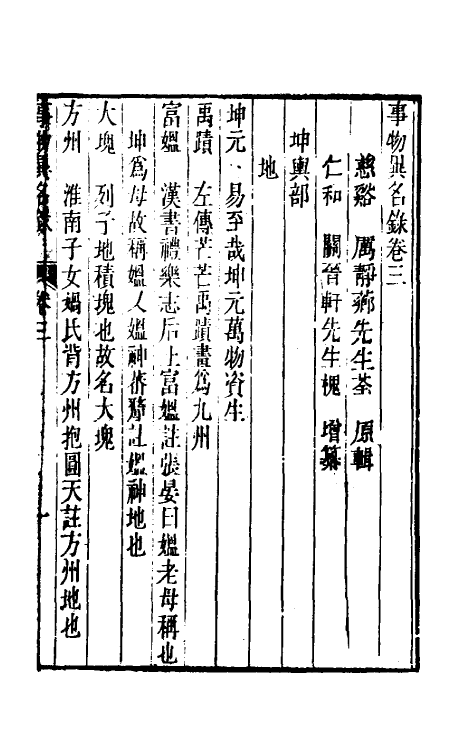 事物異名錄卷三
慈谿 厲靜薌先生荃 原輯
仁和 關晉軒先生槐 增纂
坤輿部
地
坤元 易至哉坤元萬物資生
禹蹟 左傳芒芒禹蹟畫爲九州
富媼 漢書禮樂志后土富媼註張晏曰媼老母稱也
坤爲母故稱媼又媼神蕃釐註媼神地也
大塊 列子地積塊也故名大塊
方州 淮南子女媧氏背方州抱圖天註方州地也
事物異名錄 卷三 一